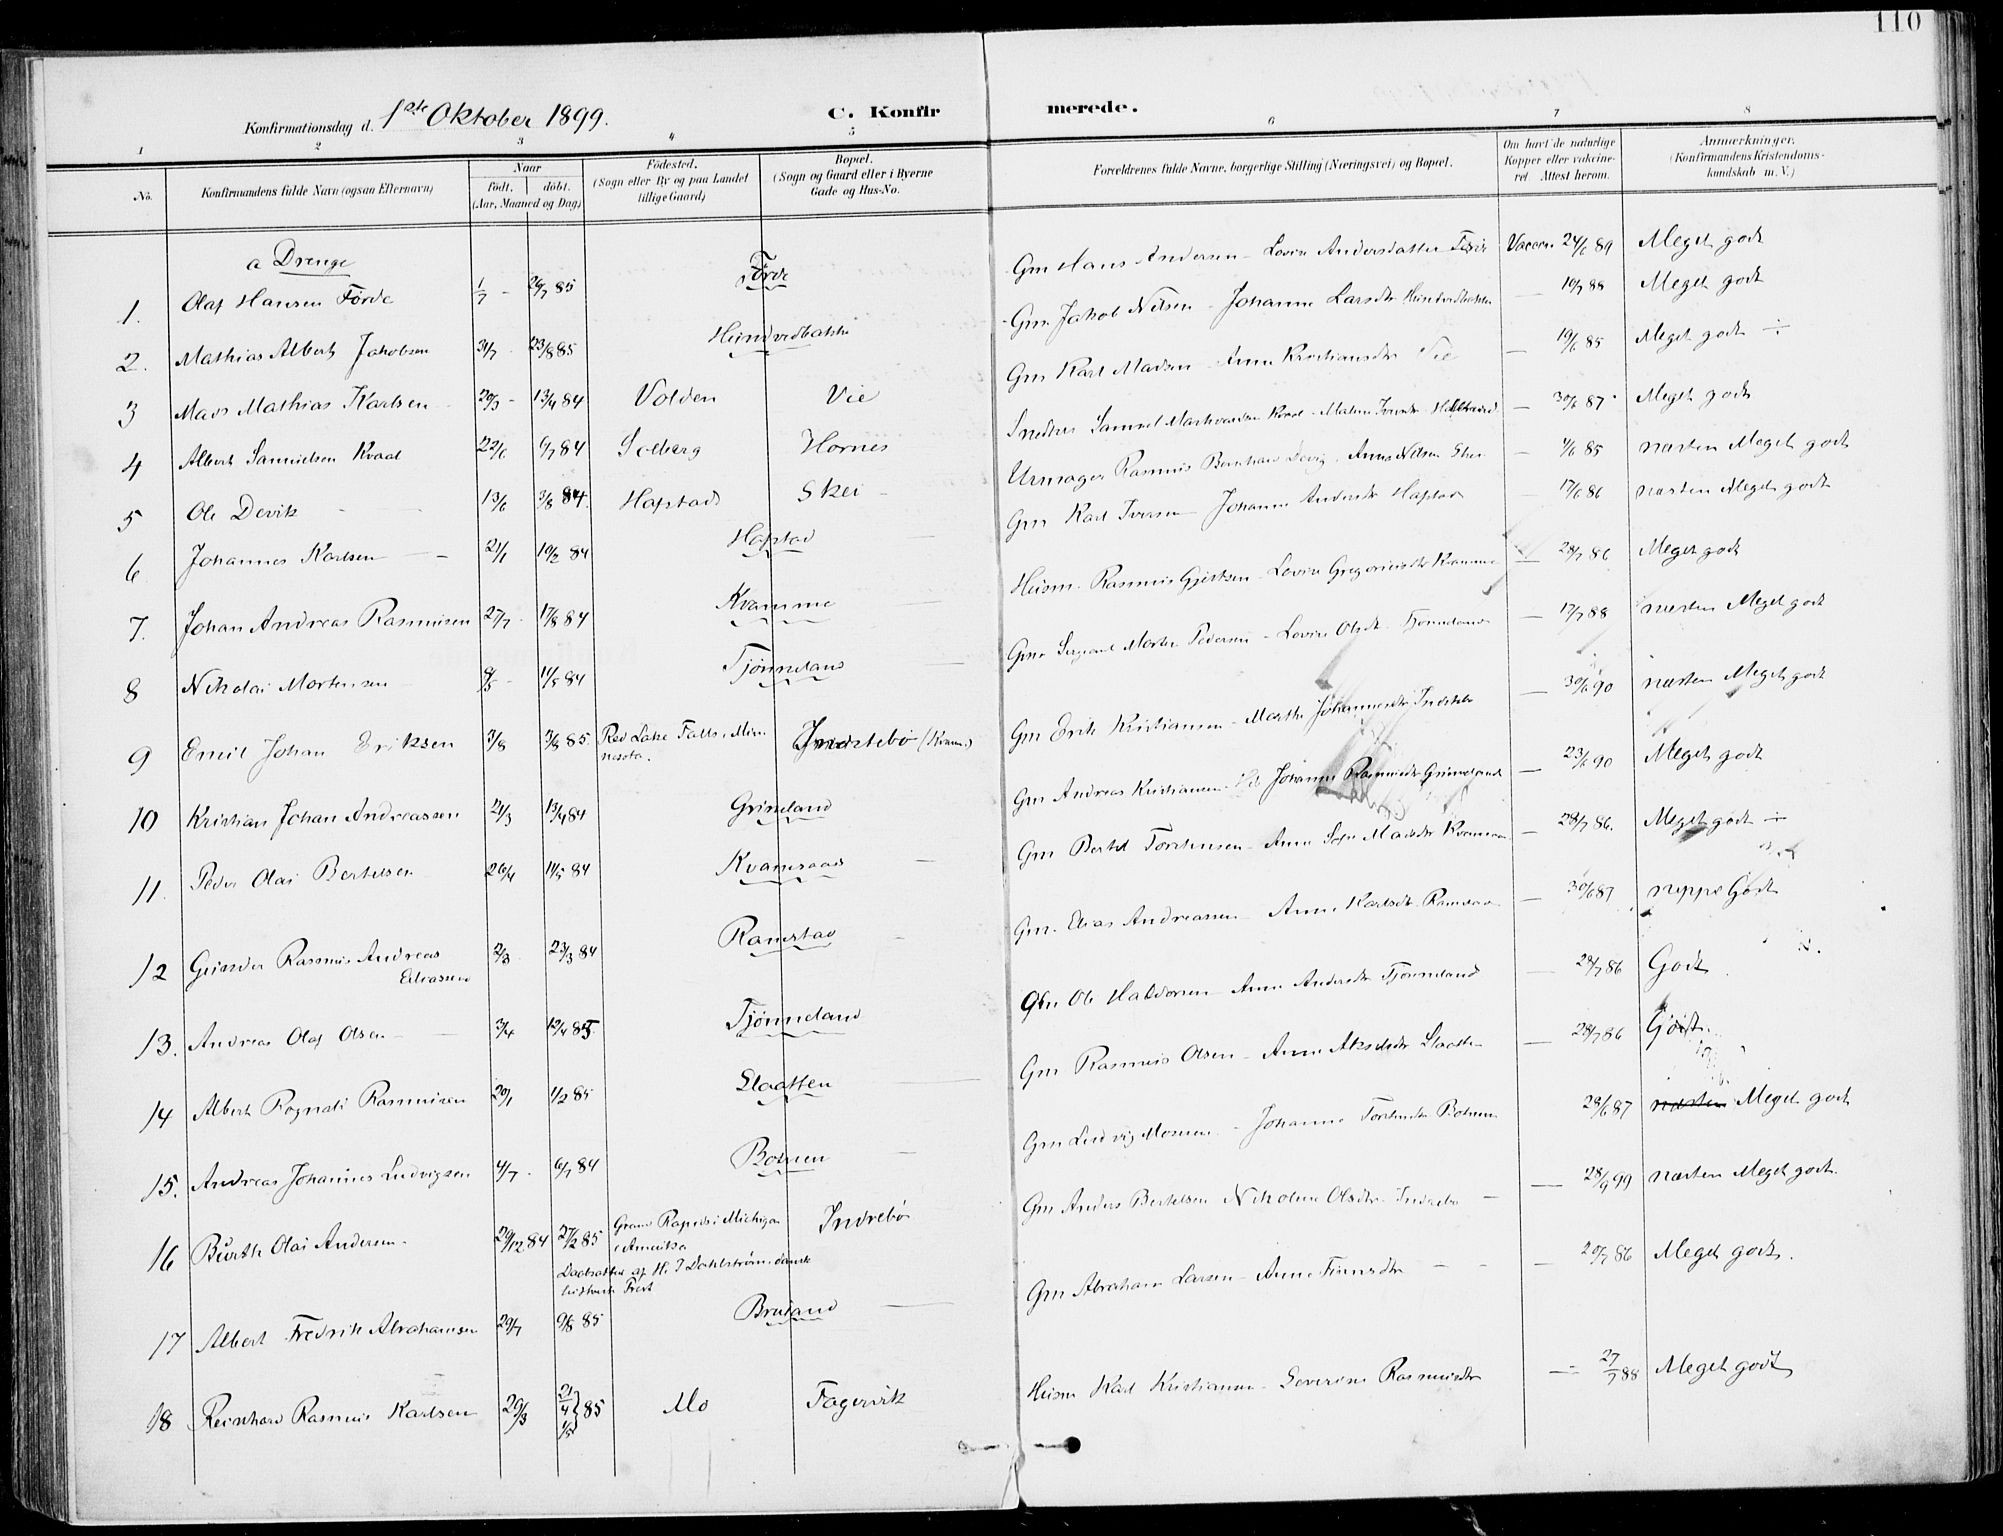 110
Konfirmationsdag d. 1ste Oktober 1899.
C. Konfirmerede.
1 2 3 4 5 6 7 8
No.
Konfirmandens fulde Navn (ogsaa Efternavn)
Naar
født. døbt.
(Aar, Maaned og Dag)
Fødested.
(Sogn eller By og paa Landet
tillige Gaard)
Bopæl.
(Sogn og Gaard eller i Byerne
Gade og Hus-No.
Forældrenes fulde Navne, borgerlige Stilling (Næringsvei) og Bopæl.
Om havt de naturlige
Kopper eller vakcine-
ret Attest herom.
Anmærkninger.
(Konfirmandens Kristendoms-
kundskab m. V.)
a Drenge
1. Olaf Hansen Førde 1/7 - 26/7 85 Førde Gm Hans Andersen - Lovise Andersdatter Førde Vaccin. 24/6 89 Meget godt
2. Mathias Albert Jakobsen 31/7 23/8 85 Hundvedbakke Gm. Jakob Nilsen - Johanne Larsdtr Hundvedbakke - 19/7 88 Meget godt
3 Mads Mathias Karlsen 20/3 - 13/4 84 Volden Vie Gm Karl Madsen - Anne Kristiansdtr Vie - 19/6 85 Meget godt ÷
4 Albert Samuelsen Kvaal 22/6 6/7 84 Solberg Hornes Snedker Samuel Kvaal - - 30/6 87 Meget godt
5 Ole Devik 13/6 3/8 84. Hafstad Skei Urmager Rasmus Bernhard Devig, Anne Nilsen Skei - 1/6 85 næsten Meget godt
6 Johannes Karlsen 21/1 10/2 84 Hafstad Gm Karl Iversen Johanne Andersdtr Hafstad - 17/6 86 næsten Meget godt
7. Johan Andreas Rasmusen 27/7 17/8 84 Kvamme Husm. Rasmus Gjertsen - Lovise Gregoriusdtr Kvamme - 28/7 86 Meget godt
8 Nikolai Mortensen 8/5 - 11/5 84 Tjønneland Gm Sergeant Morten Pedersen - Lovise Olsdtr Tjønneland - 17/7 88 næsten Meget godt
9 Emil Johan Eriksen 3/8 3/8 85. Red Lake Falls, Min-
nesota. Indrebø (Kvam.) Gm Erik Kristiansen - Marthe Johannesdtr Indrebø - 30/6 90 næsten Meget godt
10 Kristian Johan Andreassen 21/3 13/4 84 Grimeland Gm Andreas Kristiansen - Johanne Rasmusdtr Grimeland - 23/6 90 Meget godt
11. Peder Olai Bertelsen 26/4 11/5 84 Kvamsaas Gm Bertel Torstensen - Anne Madsdtr Kvamsaas - 28/7 86. Meget godt ÷
12 Rasmus Andreas
Eliassen 2/3 23/3 84 Ramstad Gm. Elias Andreassen - Anne Karlsdtr Ramstad - 30/6 87 neppe Godt
13. Andreas Olaf Olsen 3/4 12/4 85. Tjønneland Gm Ole Haldorsen - Anne Andersdtr Tjønneland - 28/7 86 Godt
14 Albert Rognald Rasmusen 20/1 1/2 85 Slaatten Gm Rasmus Olsen - Anne Akseldtr Slaatten - 28/7 86 Godt.
15. Andreas Johannes Ludvigsen 4/7 - 6/7 84 Botnen Gm Ludvig Monsen - Johanne Torstensdtr Botnen 28/6 87 næsten Meget godt
16 Olai Andersen - 29/12 84 27/2 85 Grand Rapids i Michigan
i Amerika
Daabsattest af H. J Dahlstrøm, dansk
luthersk Prest Indrebø Gm Anders Bertelsen Nikoline Olsdtr Indrebø - - 28/9 99 næsten Meget godt.
17 Albert Fredrik Abrahamsen 29/7 9/8 85 Bruland Gm Abraham Larsen - Anne Finnsdtr - - - 20/7 86 Meget godt.
18 Reinhard Rasmus Karlsen 29/3 21/4 1/5 } 85 Mo Fagervik Husm Karl Kristiansen - Severine Rasmusdtr - 27/7 88 Meget godt